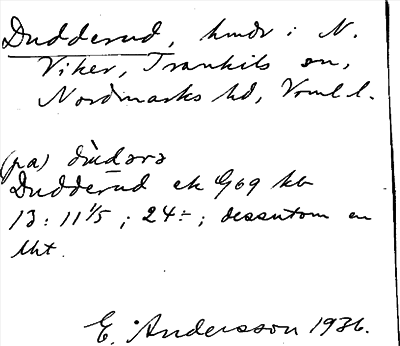 Dudderud, hmdr i N.
Viker, Trankils sn,
Nordmarks hd, Vrml l.
(pa) dùdərə
Dudderud ek G09 kb
13: 11 1/5; 24:-; dessutom en
lht.
E. Andersson 1936.